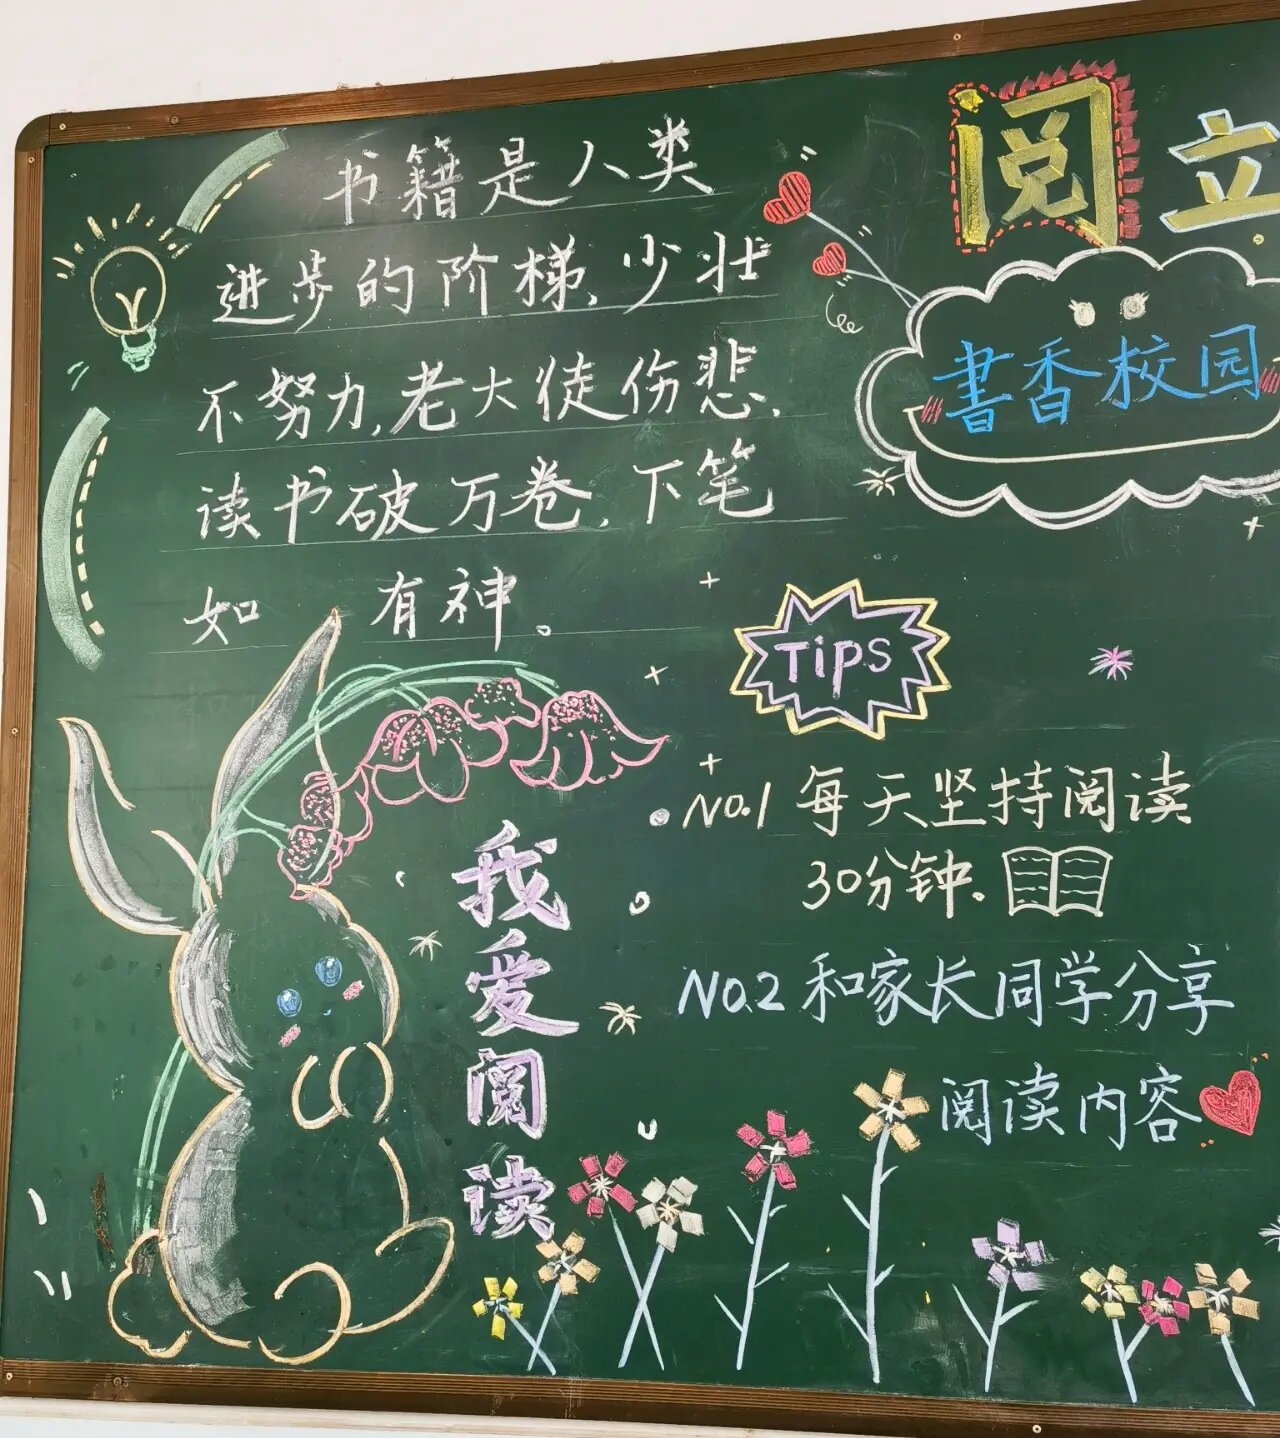 书籍是人类
进步的阶梯,少壮
不努力,老大徒伤悲,
读书破万卷,下笔
如 有神。
阅立
書香校园
Tips
No.1 每天坚持阅读
30分钟.
No.2 和家长同学分享
阅读内容
我爱阅读